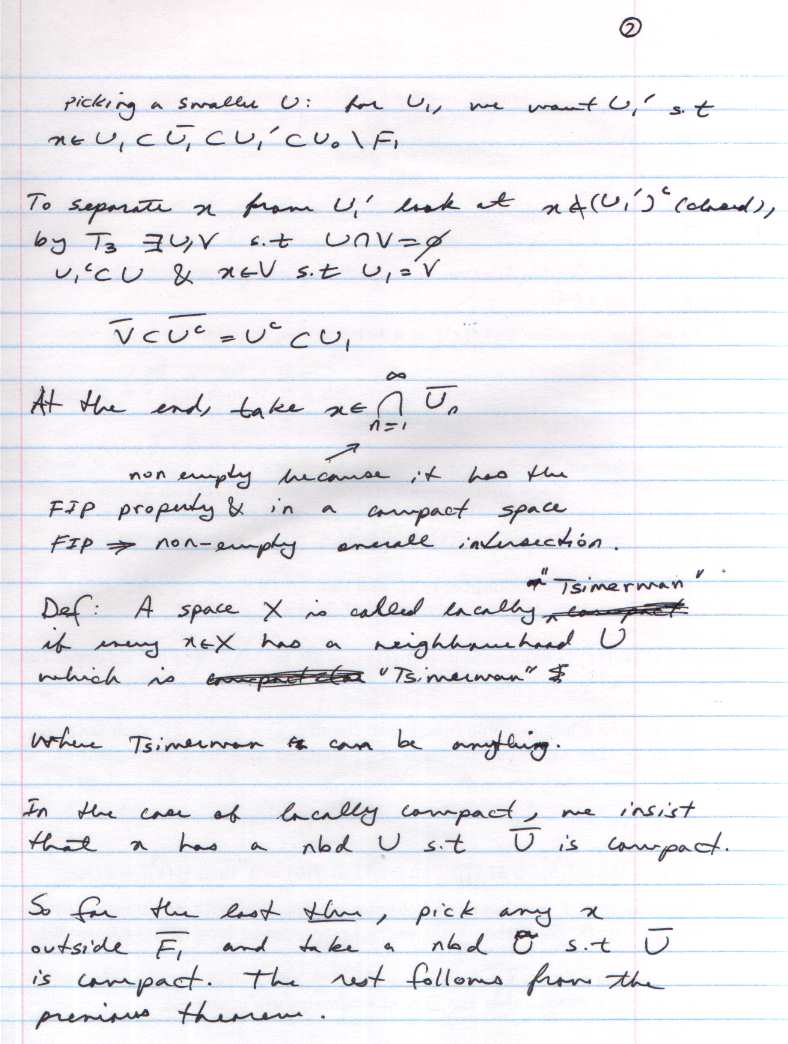 ②
picking a smaller U: for U₁, we want U₁' s.t
x∈ U₁ ⊂ Ū₁ ⊂ U₁' ⊂ U₀ \ F₁
To separate x from U₁' look at x∉(U₁')ᶜ (closed),
by T₃ ∃U,V s.t U∩V=∅
U₁ᶜ⊂U & x∈V s.t U₁=V
V̅ ⊂ U̅ᶜ̅ = Uᶜ ⊂ U₁
At the end, take x∈ ⋂ₙ₌₁^∞ Ūₙ
non empty because it has the
FIP property & in a compact space
FIP ⇒ non-empty overall intersection.
"Tsimerman"
Def: A space X is called locally compact
if every x∈X has a neighbourhood U
which is "Tsimerman"
Where Tsimerman can be anything.
In the case of locally compact, we insist
that x has a nbd U s.t Ū is compact.
So for the last thm, pick any x
outside F̅₁ and take a nbd U s.t Ū
is compact. The rest follows from the
previous theorem.